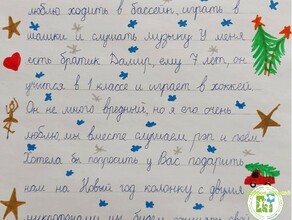 люблю ходить в бассейн, играть в
шашки и слушать музыку. У меня
есть братик Дамир, ему 7 лет, он
учится в 1 классе и играет в хоккей.
Он не много вредный, но я его очень
люблю, мы вместе слушаем рэп и поём
Хотела бы попросить у Вас подарить
нам на Новый год колонку с двумя
микрофонами мы будем